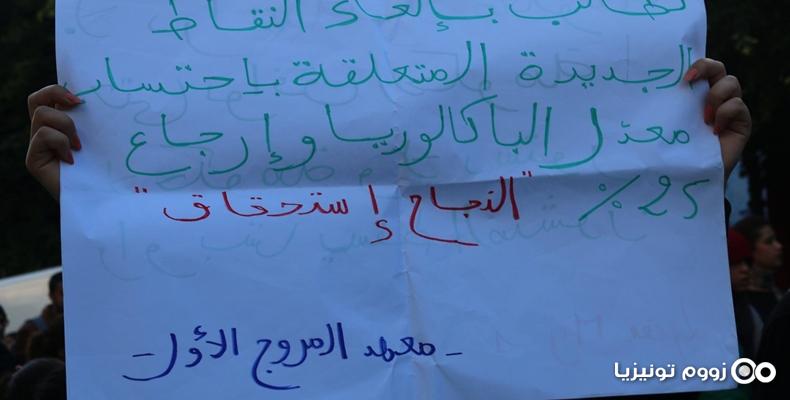 نطالب بإلغاء النقاط
الجديدة المتعلقة بإحتساب
معدّل الباكالوريا وإرجاع
25 % "النجاح إستحقاق"
- معهد المروج الأول -
زووم تونيزيا